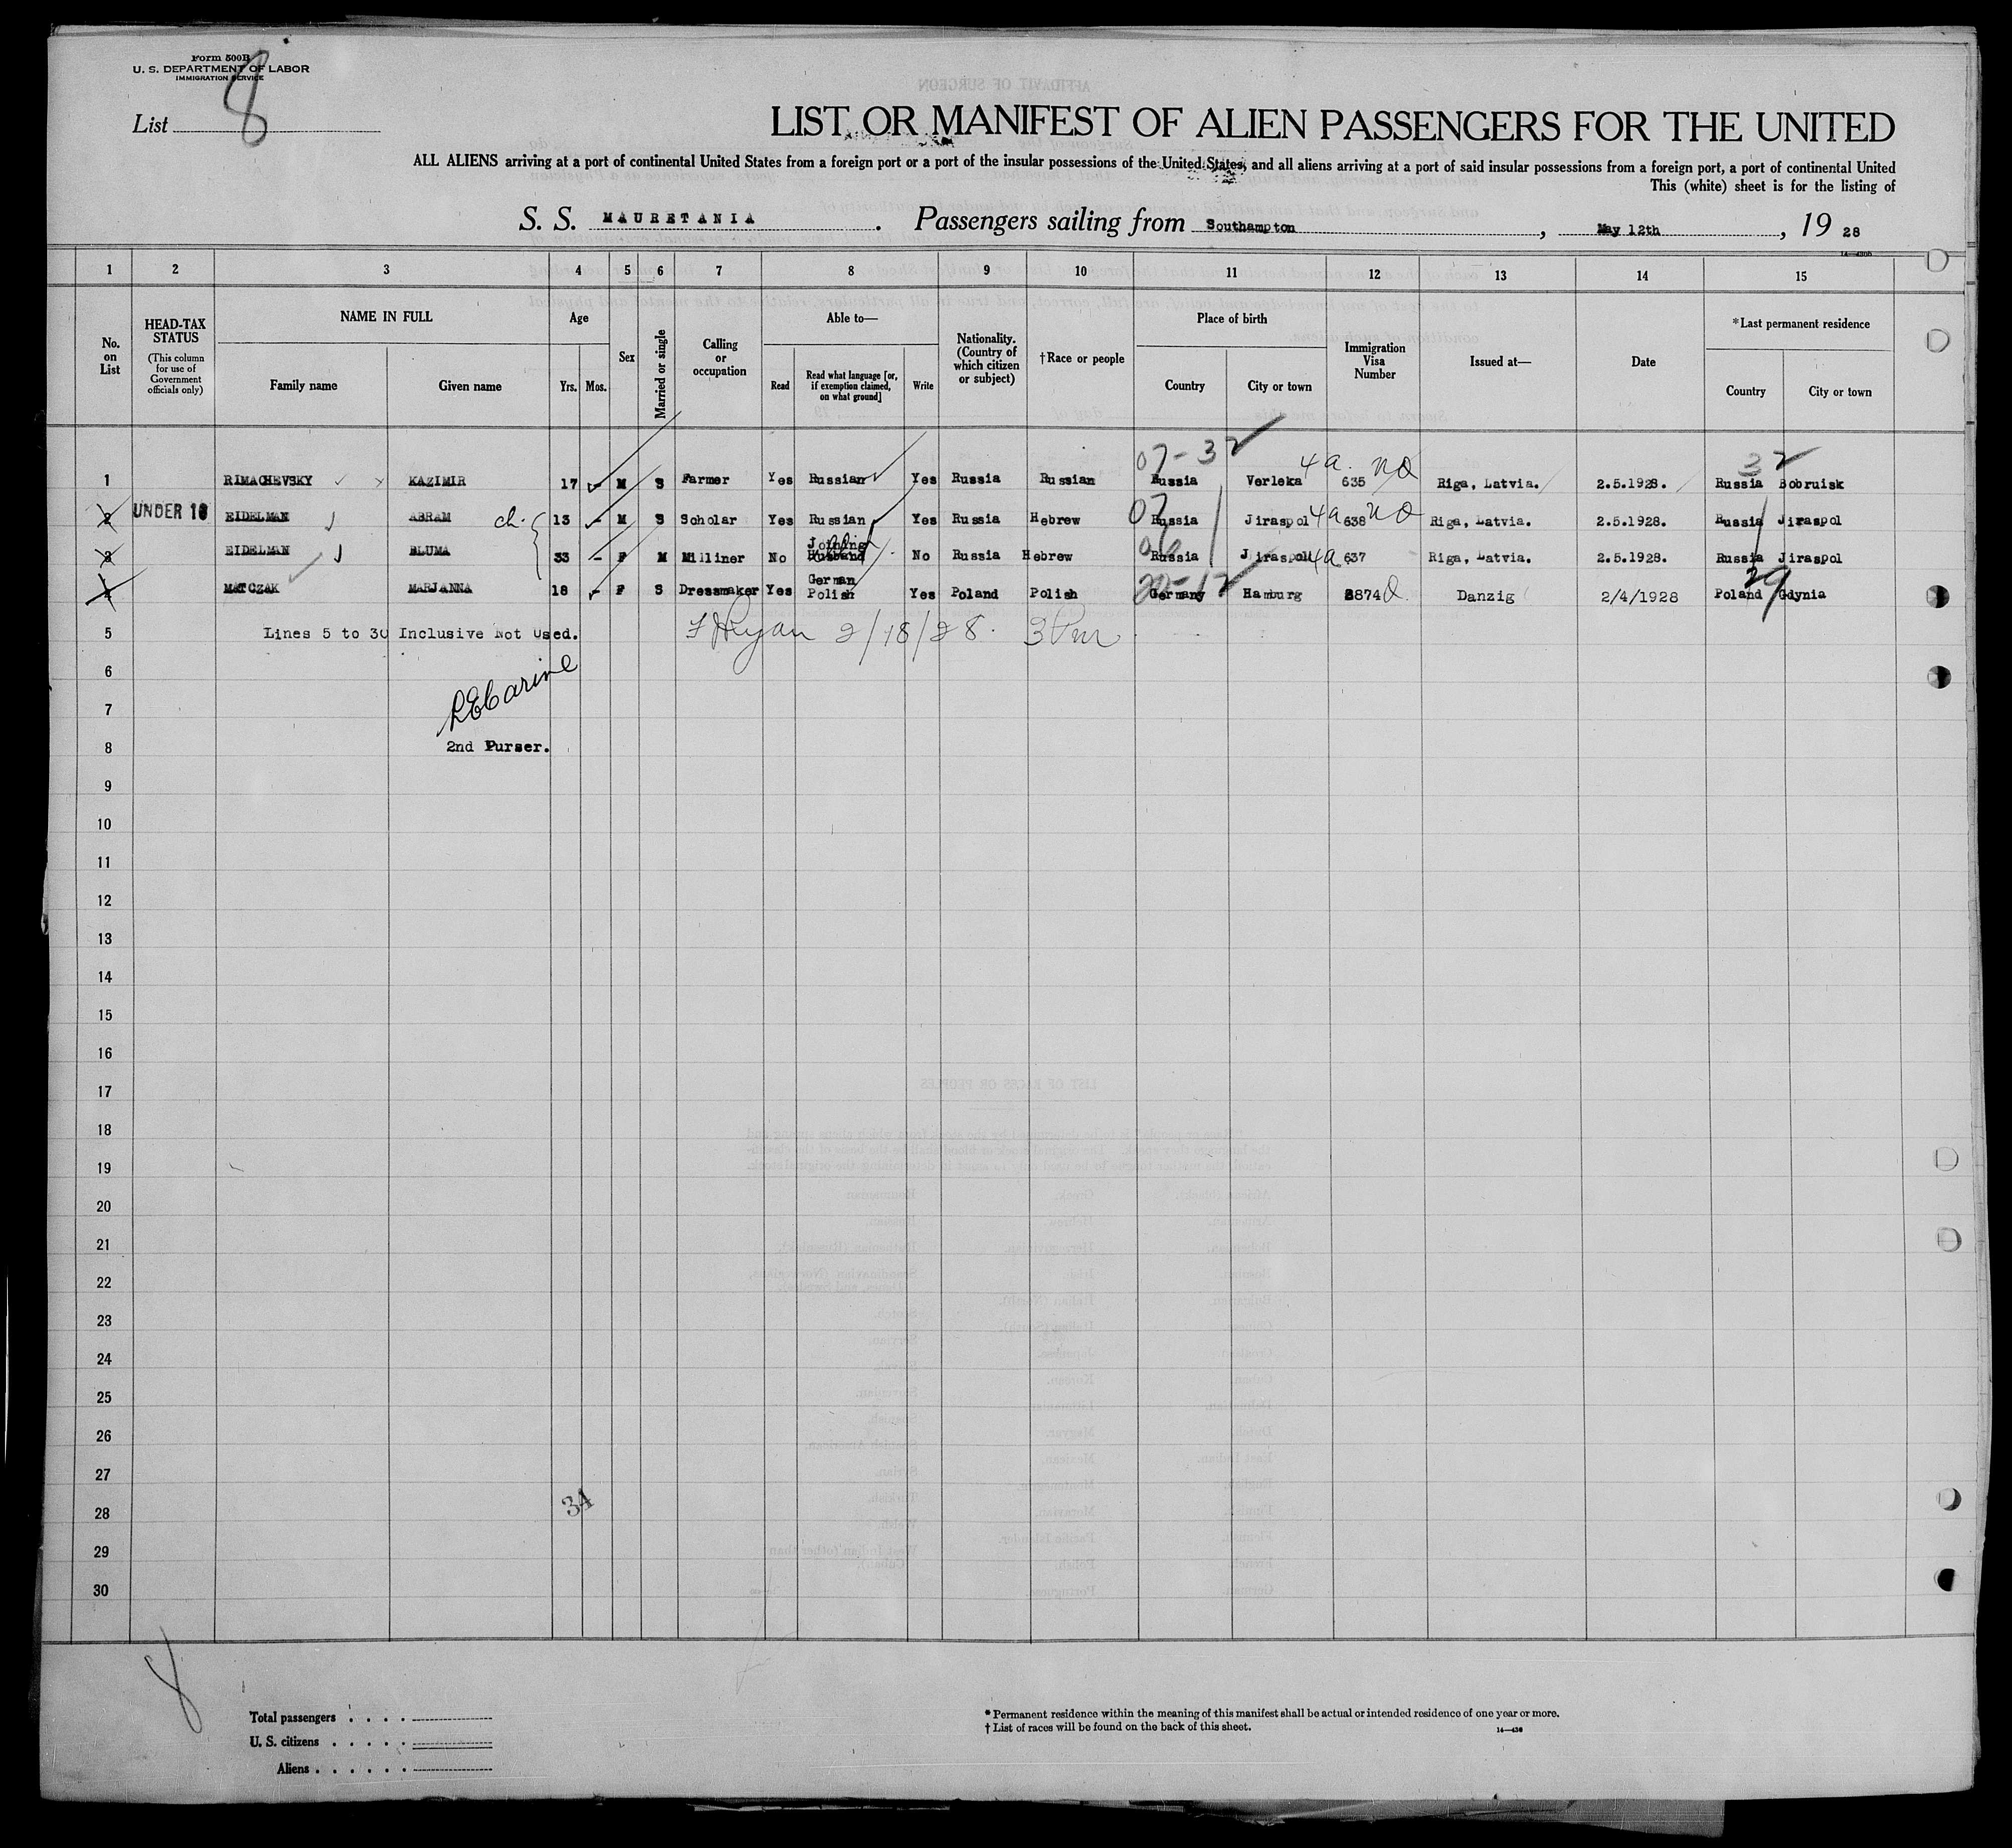 Form 500B
U. S. DEPARTMENT OF LABOR
IMMIGRATION SERVICE
List 8
LIST OR MANIFEST OF ALIEN PASSENGERS FOR THE UNITED
ALL ALIENS arriving at a port of continental United States from a foreign port or a port of the insular possessions of the United States, and all aliens arriving at a port of said insular possessions from a foreign port, a port of continental United
This (white) sheet is for the listing of
S. S. MAURETANIA. Passengers sailing from Southampton, May 12th, 19 28
1 2 3 4 5 6 7 8 9 10 11 12 13 14 15
No. on List
HEAD-TAX STATUS (This column for use of Government officials only)
NAME IN FULL
Family name Given name
Age
Yrs. Mos.
Sex
Married or single
Calling or occupation
Able to—
Read Read what language [or, if exemption claimed, on what ground] Write
Nationality. (Country of which citizen or subject)
†Race or people
Place of birth
Country City or town
Immigration Visa Number
Issued at—
Date
*Last permanent residence
Country City or town
07-32 4a. no 32
1 RIMACHEVSKY KAZIMIR 17 - M S Farmer Yes Russian Yes Russia Russian Russia Verleka 635 Riga, Latvia. 2.5.1928. Russia Bobruisk
2 UNDER 16 EIDELMAN ABRAM ch. 13 - M S Scholar Yes Russian Yes Russia Hebrew 07 Russia Jiraspol 4a 638 no Riga, Latvia. 2.5.1928. Russia Jiraspol
3 EIDELMAN BLUMA 33 - F M Milliner No Joining Husband No Russia Hebrew Russia Jiraspol 4a 637 Riga, Latvia. 2.5.1928. Russia Jiraspol
4 MATCZAK MARJANNA 18 - F S Dressmaker Yes German Polish Yes Poland Polish Germany Hamburg 8874 Danzig 2/4/1928 Poland Gdynia
5 Lines 5 to 30 Inclusive Not Used. 2/18/28. 3 Pm
6
7
8 2nd Purser.
9
10
11
12
13
14
15
16
17
18
19
20
21
22
23
24
25
26
27
28 34
29
30
8
Total passengers . . . .
U. S. citizens . . . . .
Aliens . . . . . .
* Permanent residence within the meaning of this manifest shall be actual or intended residence of one year or more.
† List of races will be found on the back of this sheet.
14—430